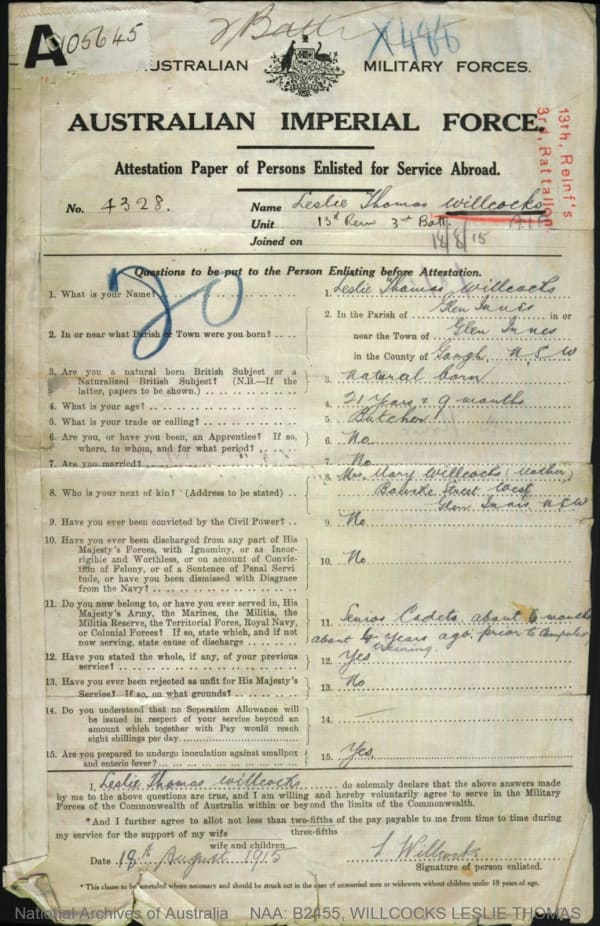 A 105645
2 Batt X486
AUSTRALIAN MILITARY FORCES.
AUSTRALIAN IMPERIAL FORCE.
13th, Reinf's
3rd, Battalion
Attestation Paper of Persons Enlisted for Service Abroad.
No. 4328. Name Leslie Thomas Willcocks
Unit 13th Rein 3rd Batt. AIF
Joined on 18/8/15
Questions to be put to the Person Enlisting before Attestation.
20
1. What is your Name? 1. Leslie Thomas Willcocks
2. In or near what Parish or Town were you born? 2. In the Parish of Glen Innes in or
near the Town of Glen Innes
in the County of Gough, NSW
3. Are you a natural born British Subject or a
Naturalized British Subject? (N.B.—If the
latter, papers to be shown.) 3. Natural born
4. What is your age? 4. 21 Years & 9 months
5. What is your trade or calling? 5. Butcher
6. Are you, or have you been, an Apprentice? If so,
where, to whom, and for what period? 6. No.
7. Are you married? 7. No
8. Who is your next of kin? (Address to be stated) 8. Mrs. Mary Willcocks (Mother)
Bourke Street West
Glen Innis NSW
9. Have you ever been convicted by the Civil Power? 9. No
10. Have you ever been discharged from any part of His
Majesty's Forces, with Ignominy, or as Incor-
rigible and Worthless, or on account of Convic-
tion of Felony, or of a Sentence of Penal Servi
tude, or have you been dismissed with Disgrace
from the Navy? 10. No
11. Do you now belong to, or have you ever served in, His
Majesty's Army, the Marines, the Militia, the
Militia Reserve, the Territorial Force, Royal Navy,
or Colonial Forces? If so, state which, and if not
now serving, state cause of discharge 11. Senior Cadets about 6 months
about 4 years ago prior to Compulsory
training.
12. Have you stated the whole, if any, of your previous
service? 12. Yes
13. Have you ever been rejected as unfit for His Majesty's
Service? If so, on what grounds? 13. No
14. Do you understand that no Separation Allowance will
be issued in respect of your service beyond an
amount which together with Pay would reach
eight shillings per day. 14. —
15. Are you prepared to undergo inoculation against smallpox
and enteric fever? 15. Yes
I, Leslie Thomas Willcocks do solemnly declare that the above answers made
by me to the above questions are true, and I am willing and hereby voluntarily agree to serve in the Military
Forces of the Commonwealth of Australia within or beyond the limits of the Commonwealth.
*And I further agree to allot not less than two-fifths of the pay payable to me from time to time during
three-fifths
my service for the support of my wife
wife and children
Date 18th August 1915 L Willcocks
Signature of person enlisted.
*This clause to be amended where necessary and should be struck out in the case of unmarried men or widowers without children under 18 years of age.
National Archives of Australia NAA: B2455, WILLCOCKS LESLIE THOMAS